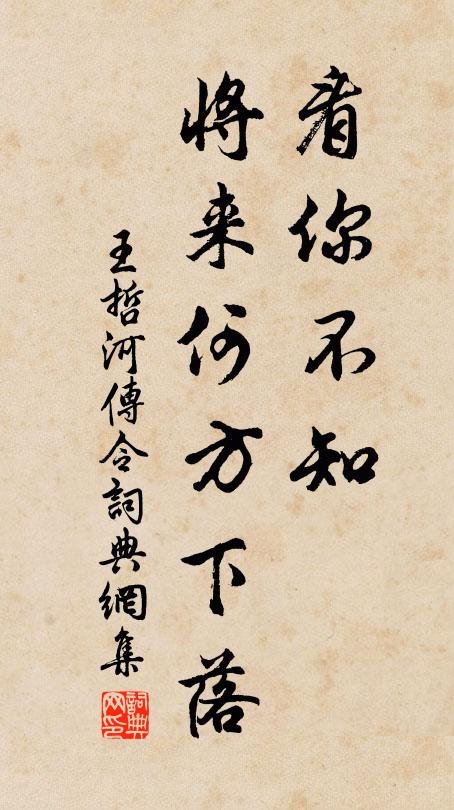 看你不知
将来何方下落
王哲河傳令詞典網集
詞典网印